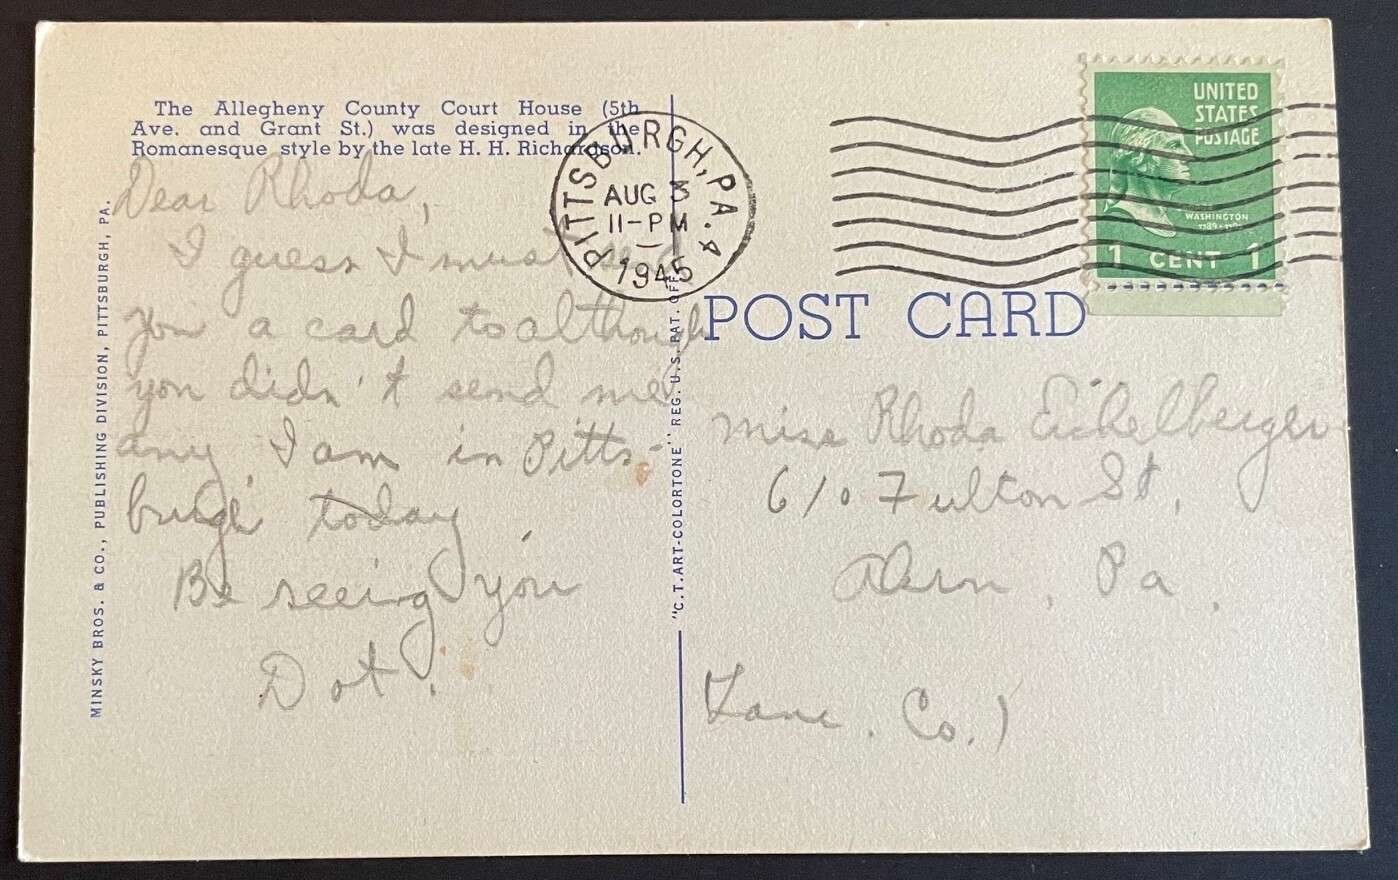 The Allegheny County Court House (5th
Ave. and Grant St.) was designed in the
Romanesque style by the late H. H. Richardson.
MINSKY BROS. & CO., PUBLISHING DIVISION, PITTSBURGH, PA.
Dear Rhoda,
I guess I must send
you a card to although
you didn't send me
any I am in Pitts-
burgh today.
Be seeing you
Dot.
"C.T. ART-COLORTONE" REG. U.S. PAT. OFF.
PITTSBURGH, PA. 4
AUG 3
11-PM
1945
UNITED
STATES
POSTAGE
WASHINGTON
1 CENT 1
POST CARD
Miss Rhoda Eichelberger
610 Fulton St,
Pa.
Lanc. Co.)